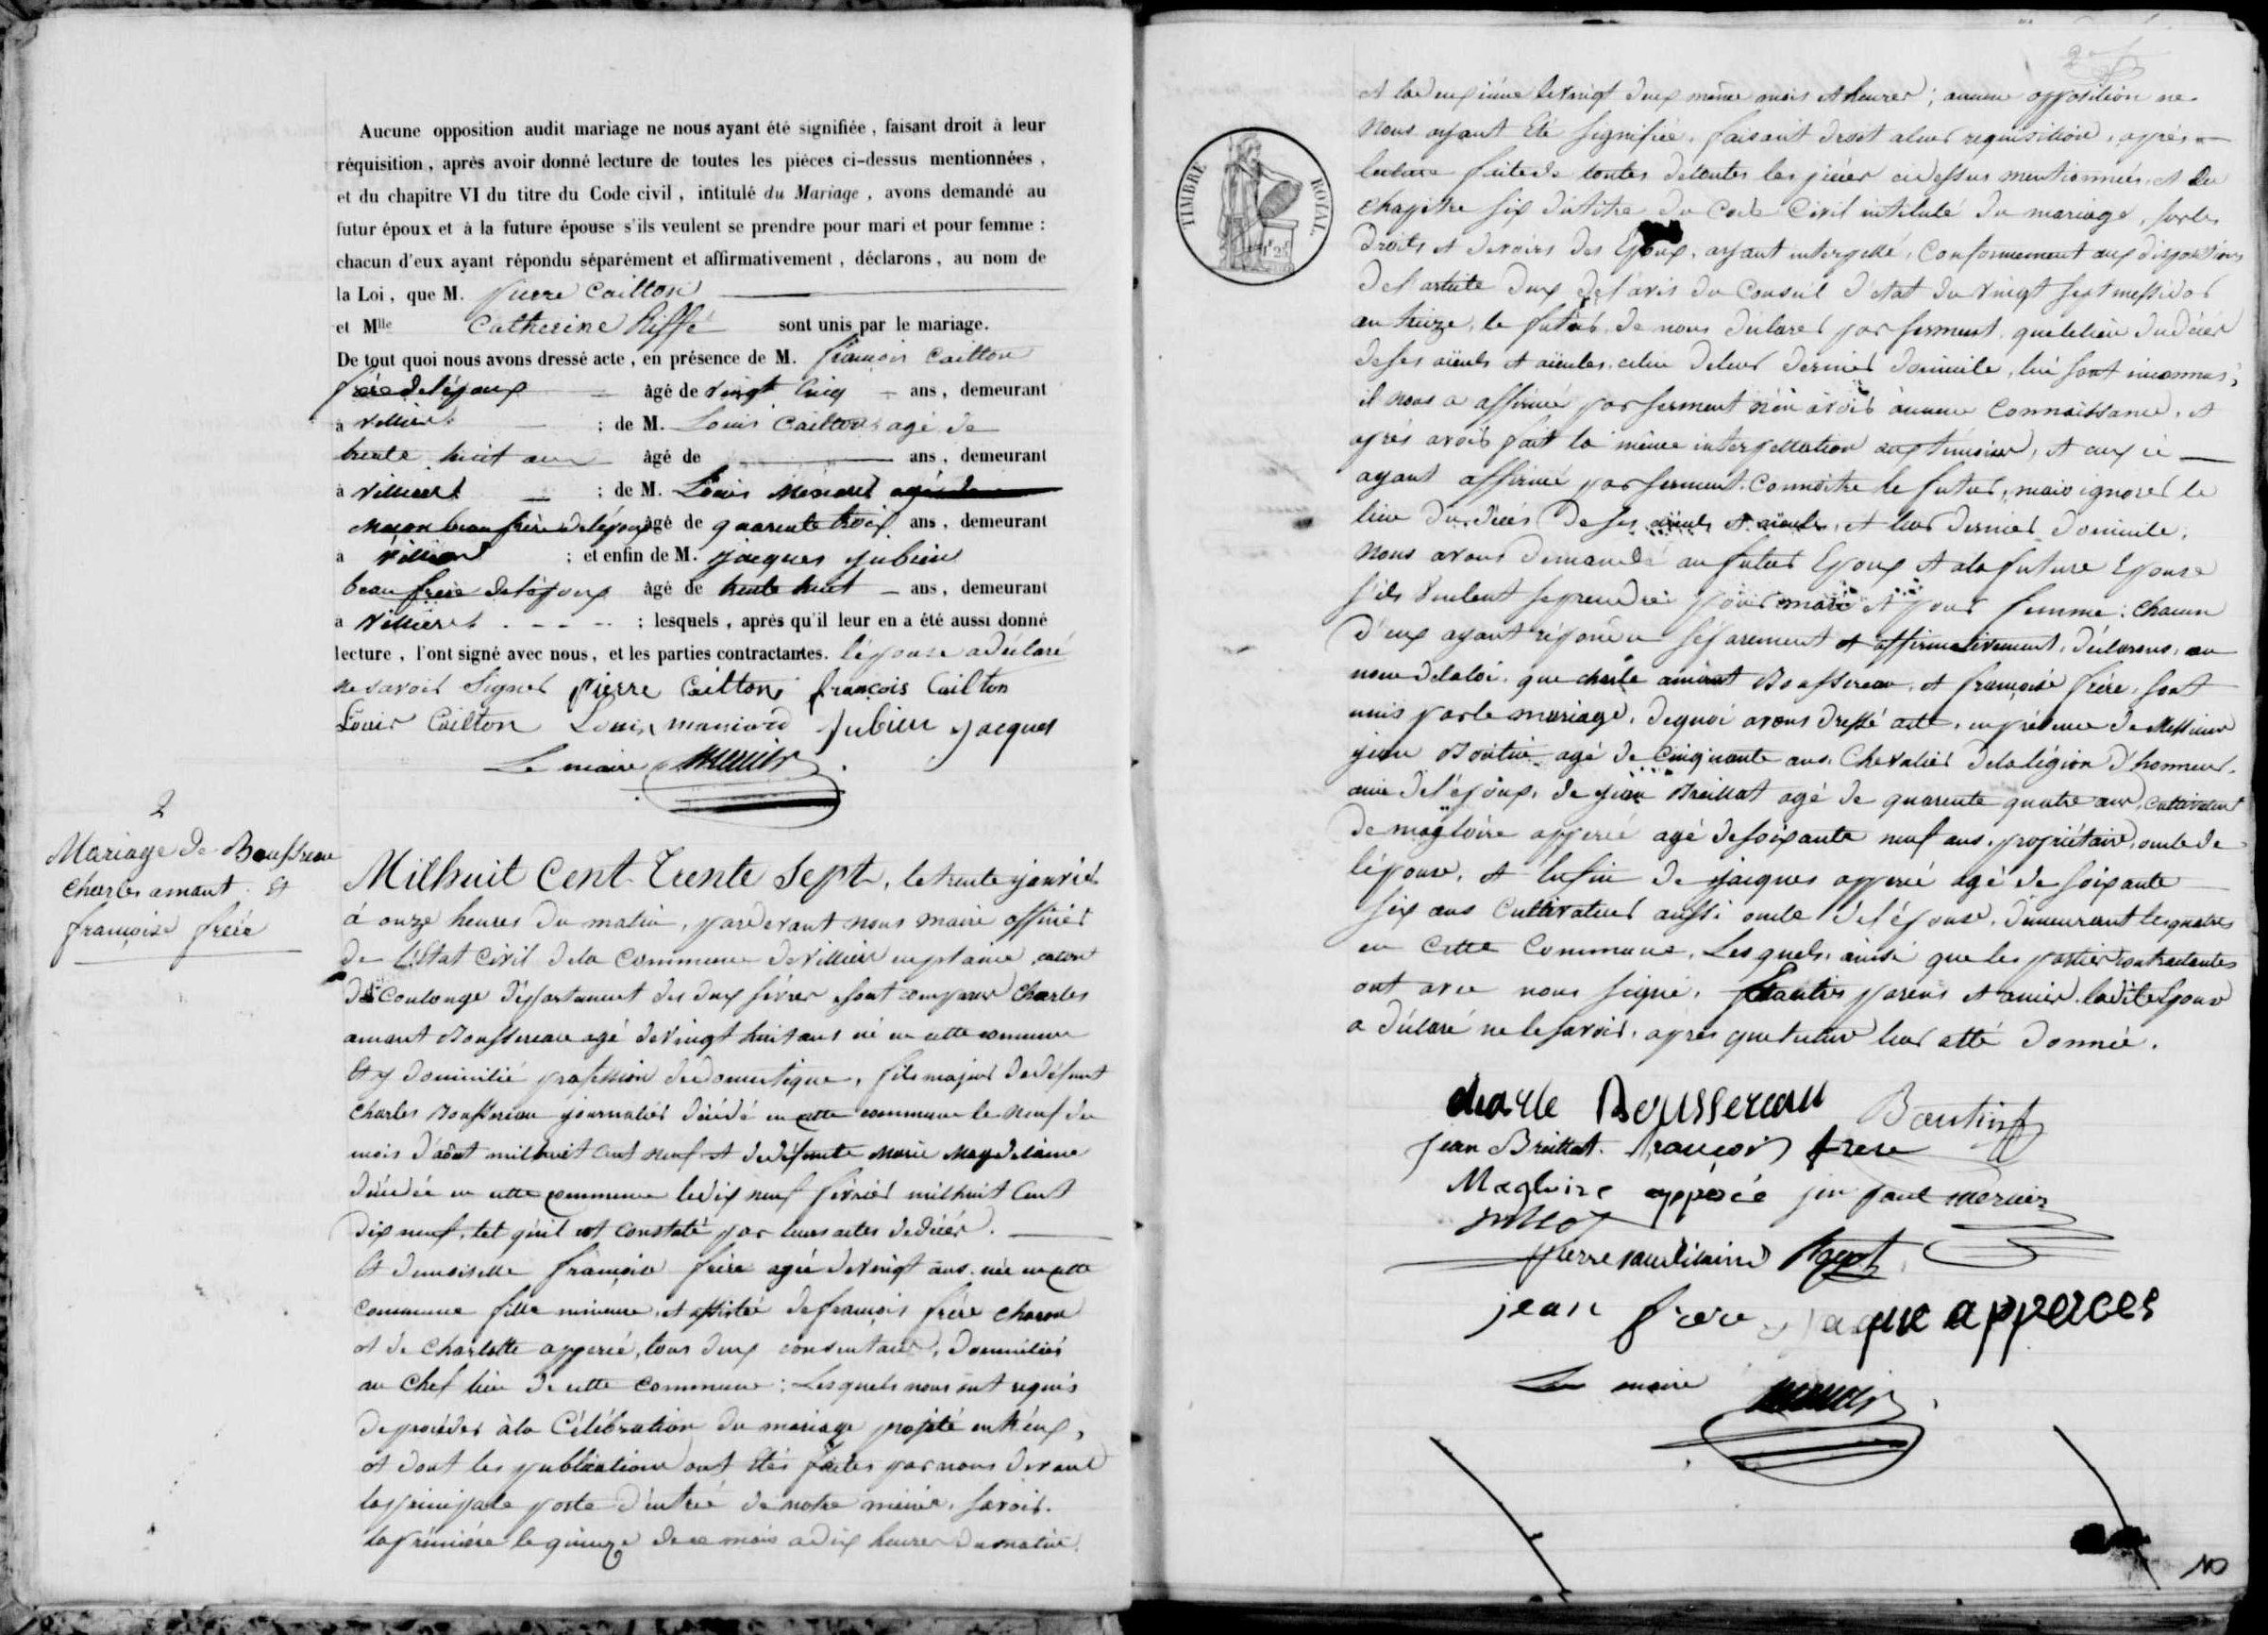 Aucune opposition audit mariage ne nous ayant été signifiée, faisant droit à leur
réquisition, après avoir donné lecture de toutes les pièces ci-dessus mentionnées,
et du chapitre VI du titre du Code civil, intitulé du Mariage, avons demandé au
futur époux et à la future épouse s'ils veulent se prendre pour mari et pour femme :
chacun d'eux ayant répondu séparément et affirmativement, déclarons, au nom de
la Loi, que M. Pierre Cailton
et Mlle Catherine Riffé sont unis par le mariage.
De tout quoi nous avons dressé acte, en présence de M. François Cailton
frère de l'époux âgé de vingt cinq ans, demeurant
à Villiers ; de M. Louis Cailton agé de
trente huit ans âgé de ans, demeurant
à Villiers ; de M. Louis Menard agé de
maçon beau frère de l'époux âgé de quarente trois ans, demeurant
à Villiers ; et enfin de M. Jacques Jubien
beau frère de l'époux âgé de trente huit ans, demeurant
à Villiers : lesquels, après qu'il leur en a été aussi donné
lecture, l'ont signé avec nous, et les parties contractantes. l'épouse a déclaré
ne savoir signer Pierre Cailton françois Cailton
Louis Cailton Louis maniard Jubien Jacques
Le maire
2
Mariage de Boussereau
Charles amant et
françoise frère
Mil huit Cent Trente Sept, le trente janvier
à onze heures du matin, pardevant nous maire officier
de L'Etat Civil de la Commune de Villiers en plaine, canton
de Coulonge département des deux sèvres, sont comparus Charles
amant Boussereau agé de vingt huit ans né en cette commune
Et y domicilié profession de domestique, fils majeur de défunt
Charles Boussereau journalier décédé en cette commune le neuf du
mois d'août mil huit cent neuf et de défunte Marie Magdelaine
décédée en cette commune le dix neuf février mil huit Cent
dix neuf, tel qu'il est constaté par leurs actes de décès.
Et demoiselle françoise frère agée de vingt ans née en cette
commune fille mineure, et assistée de françois frère charon
et de Charlotte apperée, tous deux consentans, domiciliés
au Chef lieu de cette Commune ; Lesquels nous ont requis
de procéder à la Célébration du mariage projeté entr'eux,
et dont les publications ont étés faites par nous devant
la principale porte d'entrée de notre mairie, Savoir.
la première le quinze de ce mois a dix heures du matin.
TIMBRE ROYAL
Et la deuxième le vingt deux même mois et heures ; aucune opposition ne
Nous ayant Eté signifiée, faisant droit a leur requisition, après
lecture faite de toutes de toutes les pièces ci dessus mentionnées, et du
chapitre six du titre du Code Civil intitulé du mariage, sur les
Droits et devoirs des Epoux, ayant interpellé, Conformement aux dispositions
de l'article deux de l'avis du Conseil d'état du vingt sept messidor
an treize, le futur, de nous déclarer par serment que le lieu du décès
de ses aïeuls et aïeules, celui de leur dernier domicile, lui sont inconnus,
il nous a affirmé par serment n'en avoir aucune Connaissance, et
après avoir fait la même interpellation aux témoins, et ceux-ci
ayant affirmé par serment Connoître le futur, mais ignorer le
lieu du décès de ses aïeuls et aïeules, et leur dernier domicile.
Nous avons demandé au futur Epoux et a la future Epouse
s'ils veulent se prendre pour mari et pour femme : chacun
d'eux ayant répondu séparement et affirmativement, déclarons, au
nom de la loi, que charle amant Boussereau, et françoise frère, sont
unis par le mariage. de quoi avons dressé acte, en présence de Messieurs
jean Boutin agé de cinquante ans, Chevalier de la légion d'honneur,
ami de l'époux, de jean Breillat agé de quarente quatre ans, cultivateur
de magloire apperée agé de soixante neuf ans, propriétaire, oncle de
l'épouse, et Enfin de jacques apperée agé de soixante
six ans Cultivateur aussi oncle de l'épouse, demeurant les quatres
en cette Commune, Lesquels, ainsi que les parties Contractantes
ont avec nous signé, et autres parens et amies, la dite Epouse
a déclaré ne le savoir, après que lecture leur a été donnée.
charle Boussereau Boutin
jean Breillat françois frere
Magloire apperée jn paul mercier
pierre
jean frere jaque apperces
Le maire
10